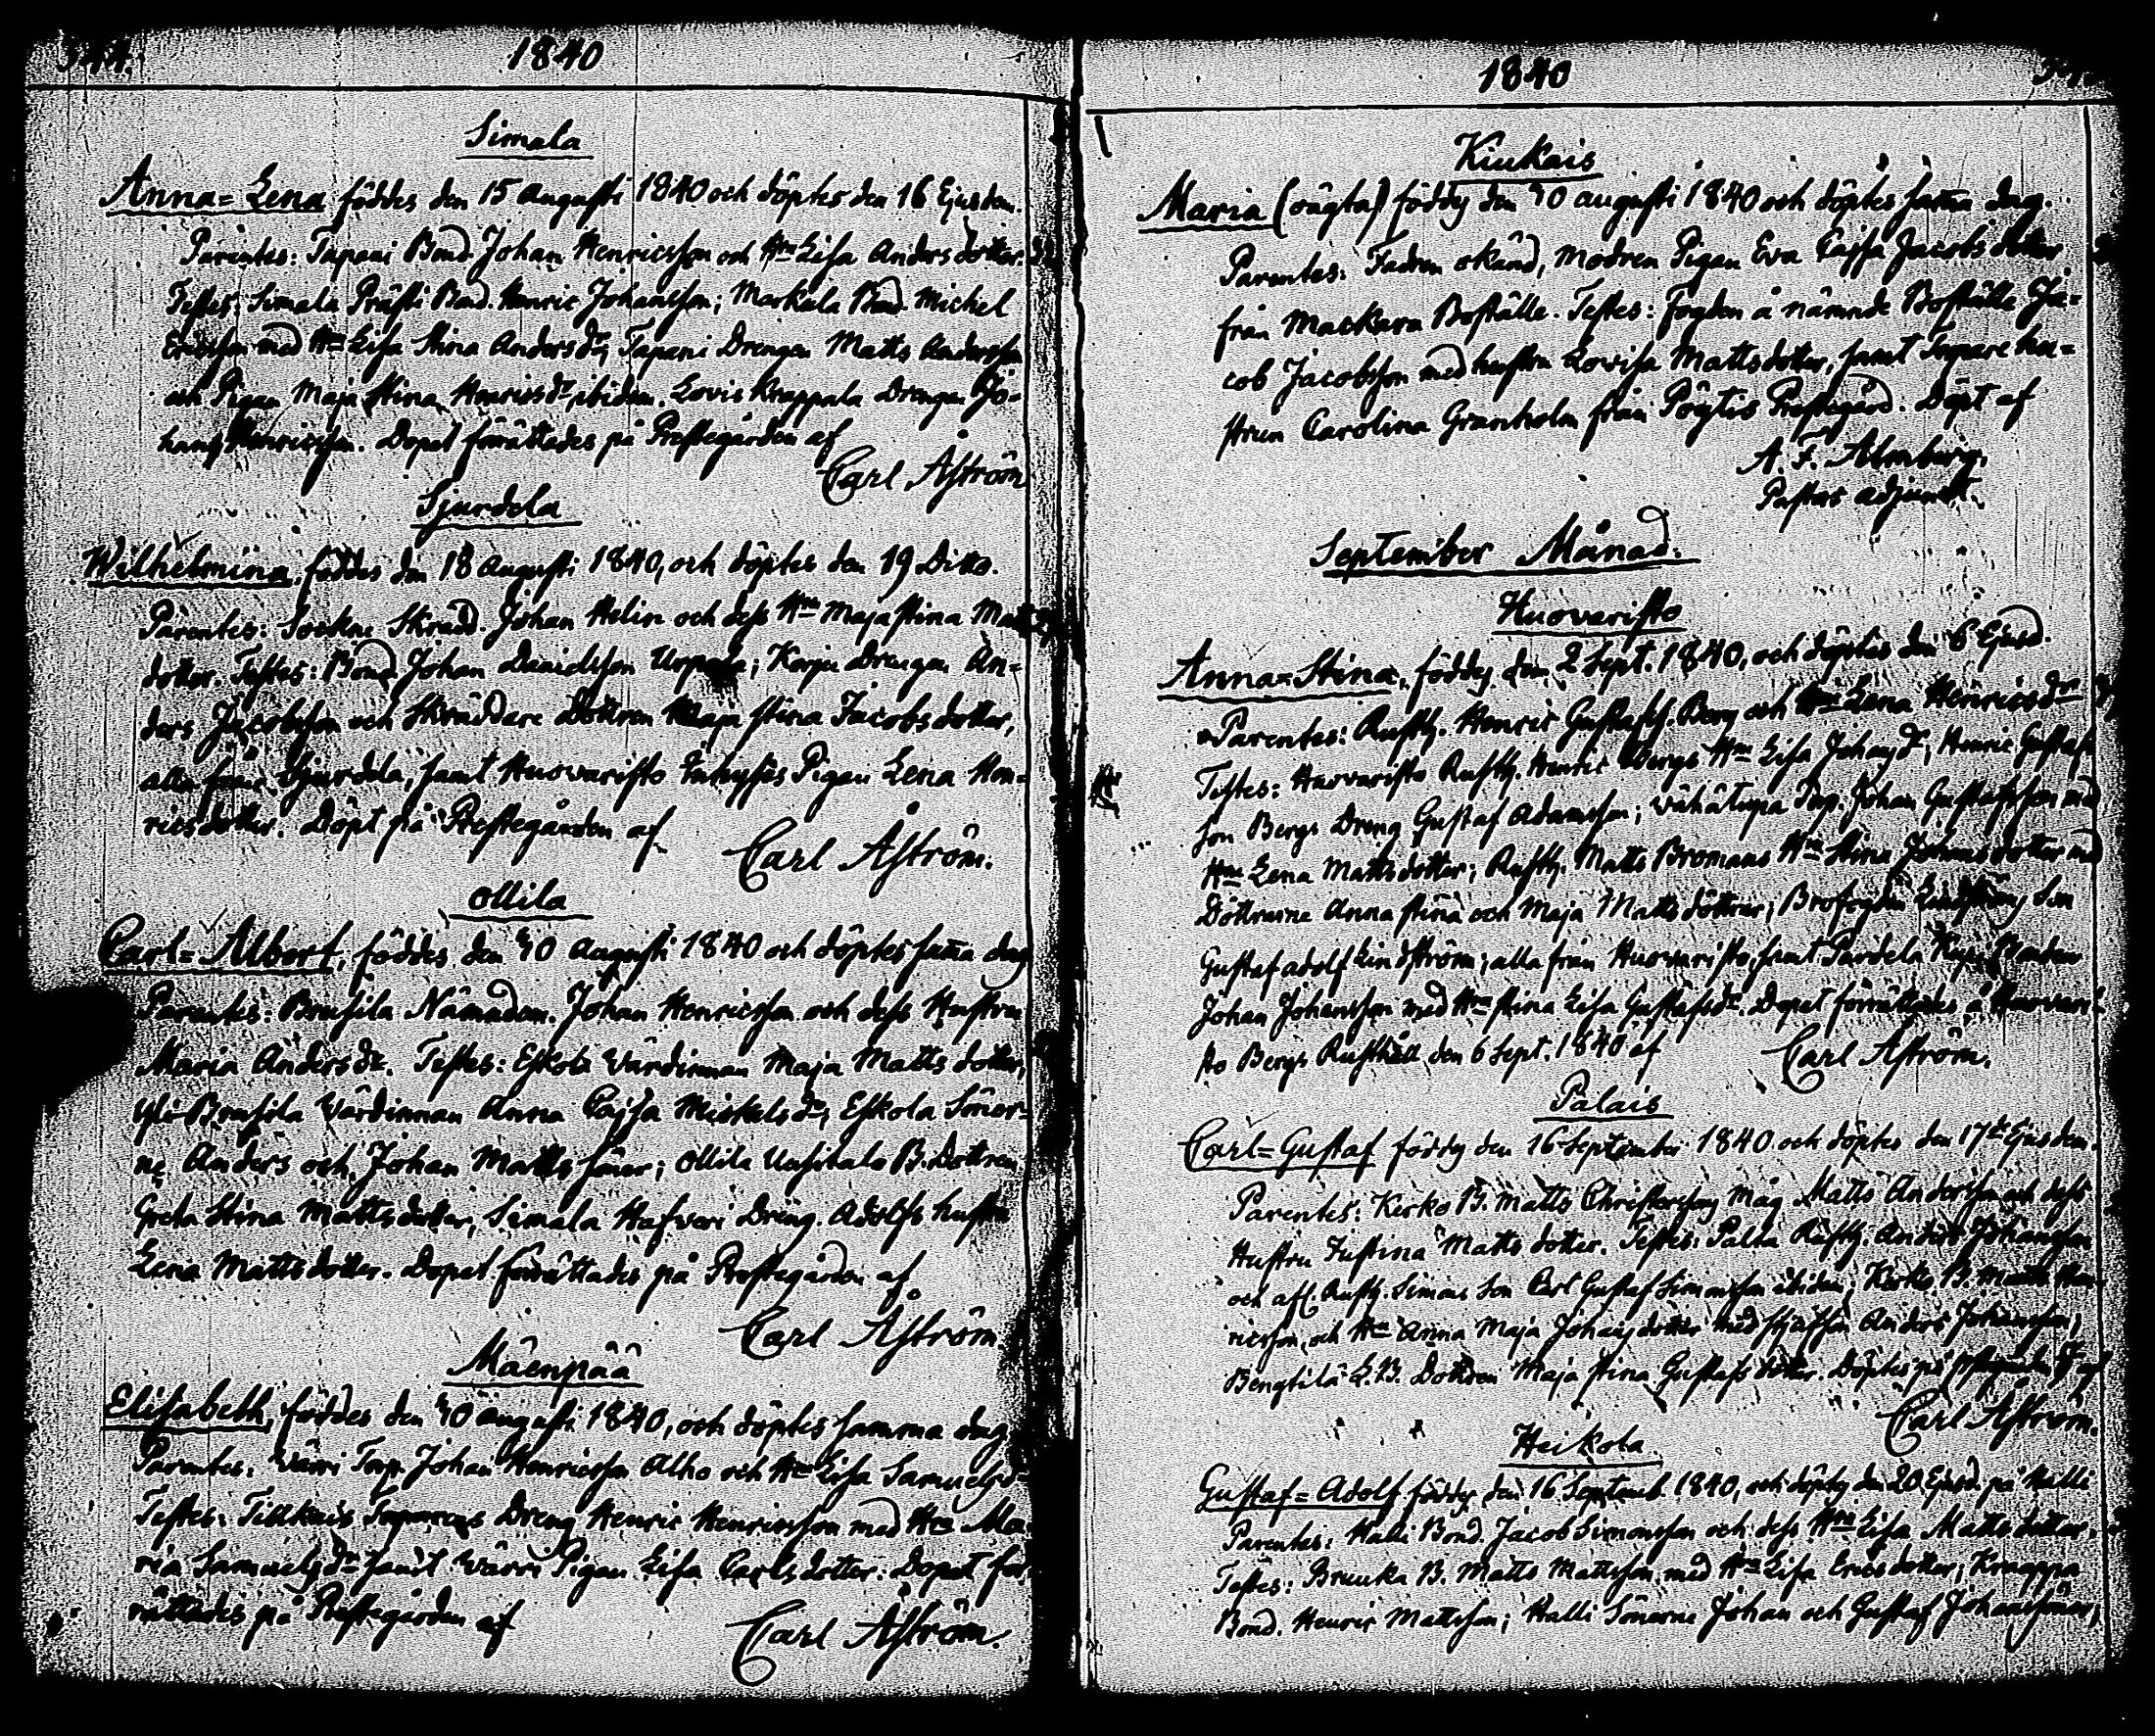 344.
1840
Simala
Anna=Lena föddes den 15 Augusti 1840 och döptes den 16 Ejusdem.
Parentes: Tapani Bond. Johan Henricsson och Hru Lisa Anders dotter.
Testes: Simala Prästi Bond. Henric Johansson; Markula Bond. Michel
Ericsson med Hru Lisa Stina Andersdr, Tapani Drengen Matts Andersson
och Pigan Maja Stina Henricsdr, ibidem. Lovis Knappala Drengen Jo=
hans Henricsson. Dopet förrättades på Prestegården af
Carl Åström
Sjurdela
Wilhelmina, föddes den 18 Augusti 1840, och döptes den 19 Ditto.
Parentes: Sockne Skradd. Johan Helin och dess Hru Maja Stina Matts
dotter. Testes: Bond. Johan Danielsson Urpola; Korju Drengen An=
ders Jacobsson och Skräddare Dottren Maja Stina Jacobs dotter,
alla från Sjurdela, samt Huovaristo Inhyses Pigan Lena Hen=
ricsdotter. Döpt på Prestegården af
Carl Åström.
Ollila
Carl=Albert, föddes den 20 Augusti 1840 och döptes sama dag
Parentes: Brusila Nämndem. Johan Henricsson och dess Hustru
Maria Andersdr. Testes: Eskola Värdinnan Maja Matts dotter,
Yli-Brusila Värdinnan Anna Cajsa Mickelsdr, Eskola Söner=
ne Anders och Johan Matts söner; Ollila Uusitalo B. Dottren
Greta Stina Mattsdotter, Simala Hafveri Dreng. Adolfs hustru
Lena Mattsdotter. Dopet förrättades på Prestegården af
Carl Åström
Mäenpää
Elisabeth, föddes den 20 Augusti 1840, och döptes samma dag
Parentes: Wärri Torp. Johan Henricsson Alho och Hru Lisa Samuelsdr
Testes: Dreng Henric Henricsson med Hru Ma=
ria Samuelsdr samt Wärri Pigan Lisa Carlsdotter. Dopet för=
rättades på Prestegården af
Carl Åström.
1840
Kiukais
Maria (oägta) föddes den 20 Augusti 1840 och döptes sama dag.
Parentes: Fadren okänd, Modren Pigan Eva Cajsa Jacobs dotter
från Mackara Boställe. Testes: Fogden å nämnde Boställe Ja=
cob Jacobsson med hustru Lovisa Mattsdotter, samt Torpare hu=
strun Carolina Granholm från Pögtis Prestegård. Döpt af
A. F. Almberg.
Pastors adjunct.
September Månad.
Huovaristo
Anna=Stina, föddes den 2 Sept. 1840, och döptes den 6 Ejusd.
Parentes: Rusth. Henric Gustafss. Berg och Hru Lena Henricsdr
Testes: Huovaristo Rusth. Henric Bergs Hru Lisa Johansdr; Henric Gustafs
son Bergs Dreng Gustaf Adamsson; Wähätupa Torp. Johan Gustafsson med
Hru Lena Mattsdotter; Rusth. Matts Bromans Hru Stina Johansdotter med
Döttrarne Anna Stina och Maja Matts döttrar; Brofogden Lindströms Son
Gustaf Adolf Lindström; alla från Huovaristo, samt Pardela
Johan Johansson med Hru Stina Lisa Gustafsdr. Dopet förrättades å Huovari=
sto Bergs Rusthåll den 6 Sept. 1840 af
Carl Åström.
Palais
Carl=Gustaf föddes den 16 September 1840 och döptes den 17de Ejusdem.
Parentes: Kerko B. Matts Christerssons Måg Matts Andersson och dess
Hustru Justina Matts dotter. Testes: Palta Rusth. Anders Johansson
och afl. Rusth. Simons Son Carl Gustaf Simonsson ibidem; Kerko B. Hen
ricsson, och Hru Anna Maja Johans dotter med Anders Johansson,
Bengtilä L. B. Dottren Maja Stina Gustafs dotter. Döptes på
Carl Åström.
Heikola
Gustaf=Adolf föddes den 16 Septemb. 1840, och döptes den 20 Ejusd. på Halli
Parentes: Halli Bond. Jacob Simonsson och dess Hru Lisa Mattsdotter.
Testes: Bruuka B. Matts Mattsson med Hru Lisa Ericsdotter; Knaappa
Bond. Henric Mattsson; Halli Sönerne Johan och Gustaf Johanssöner;